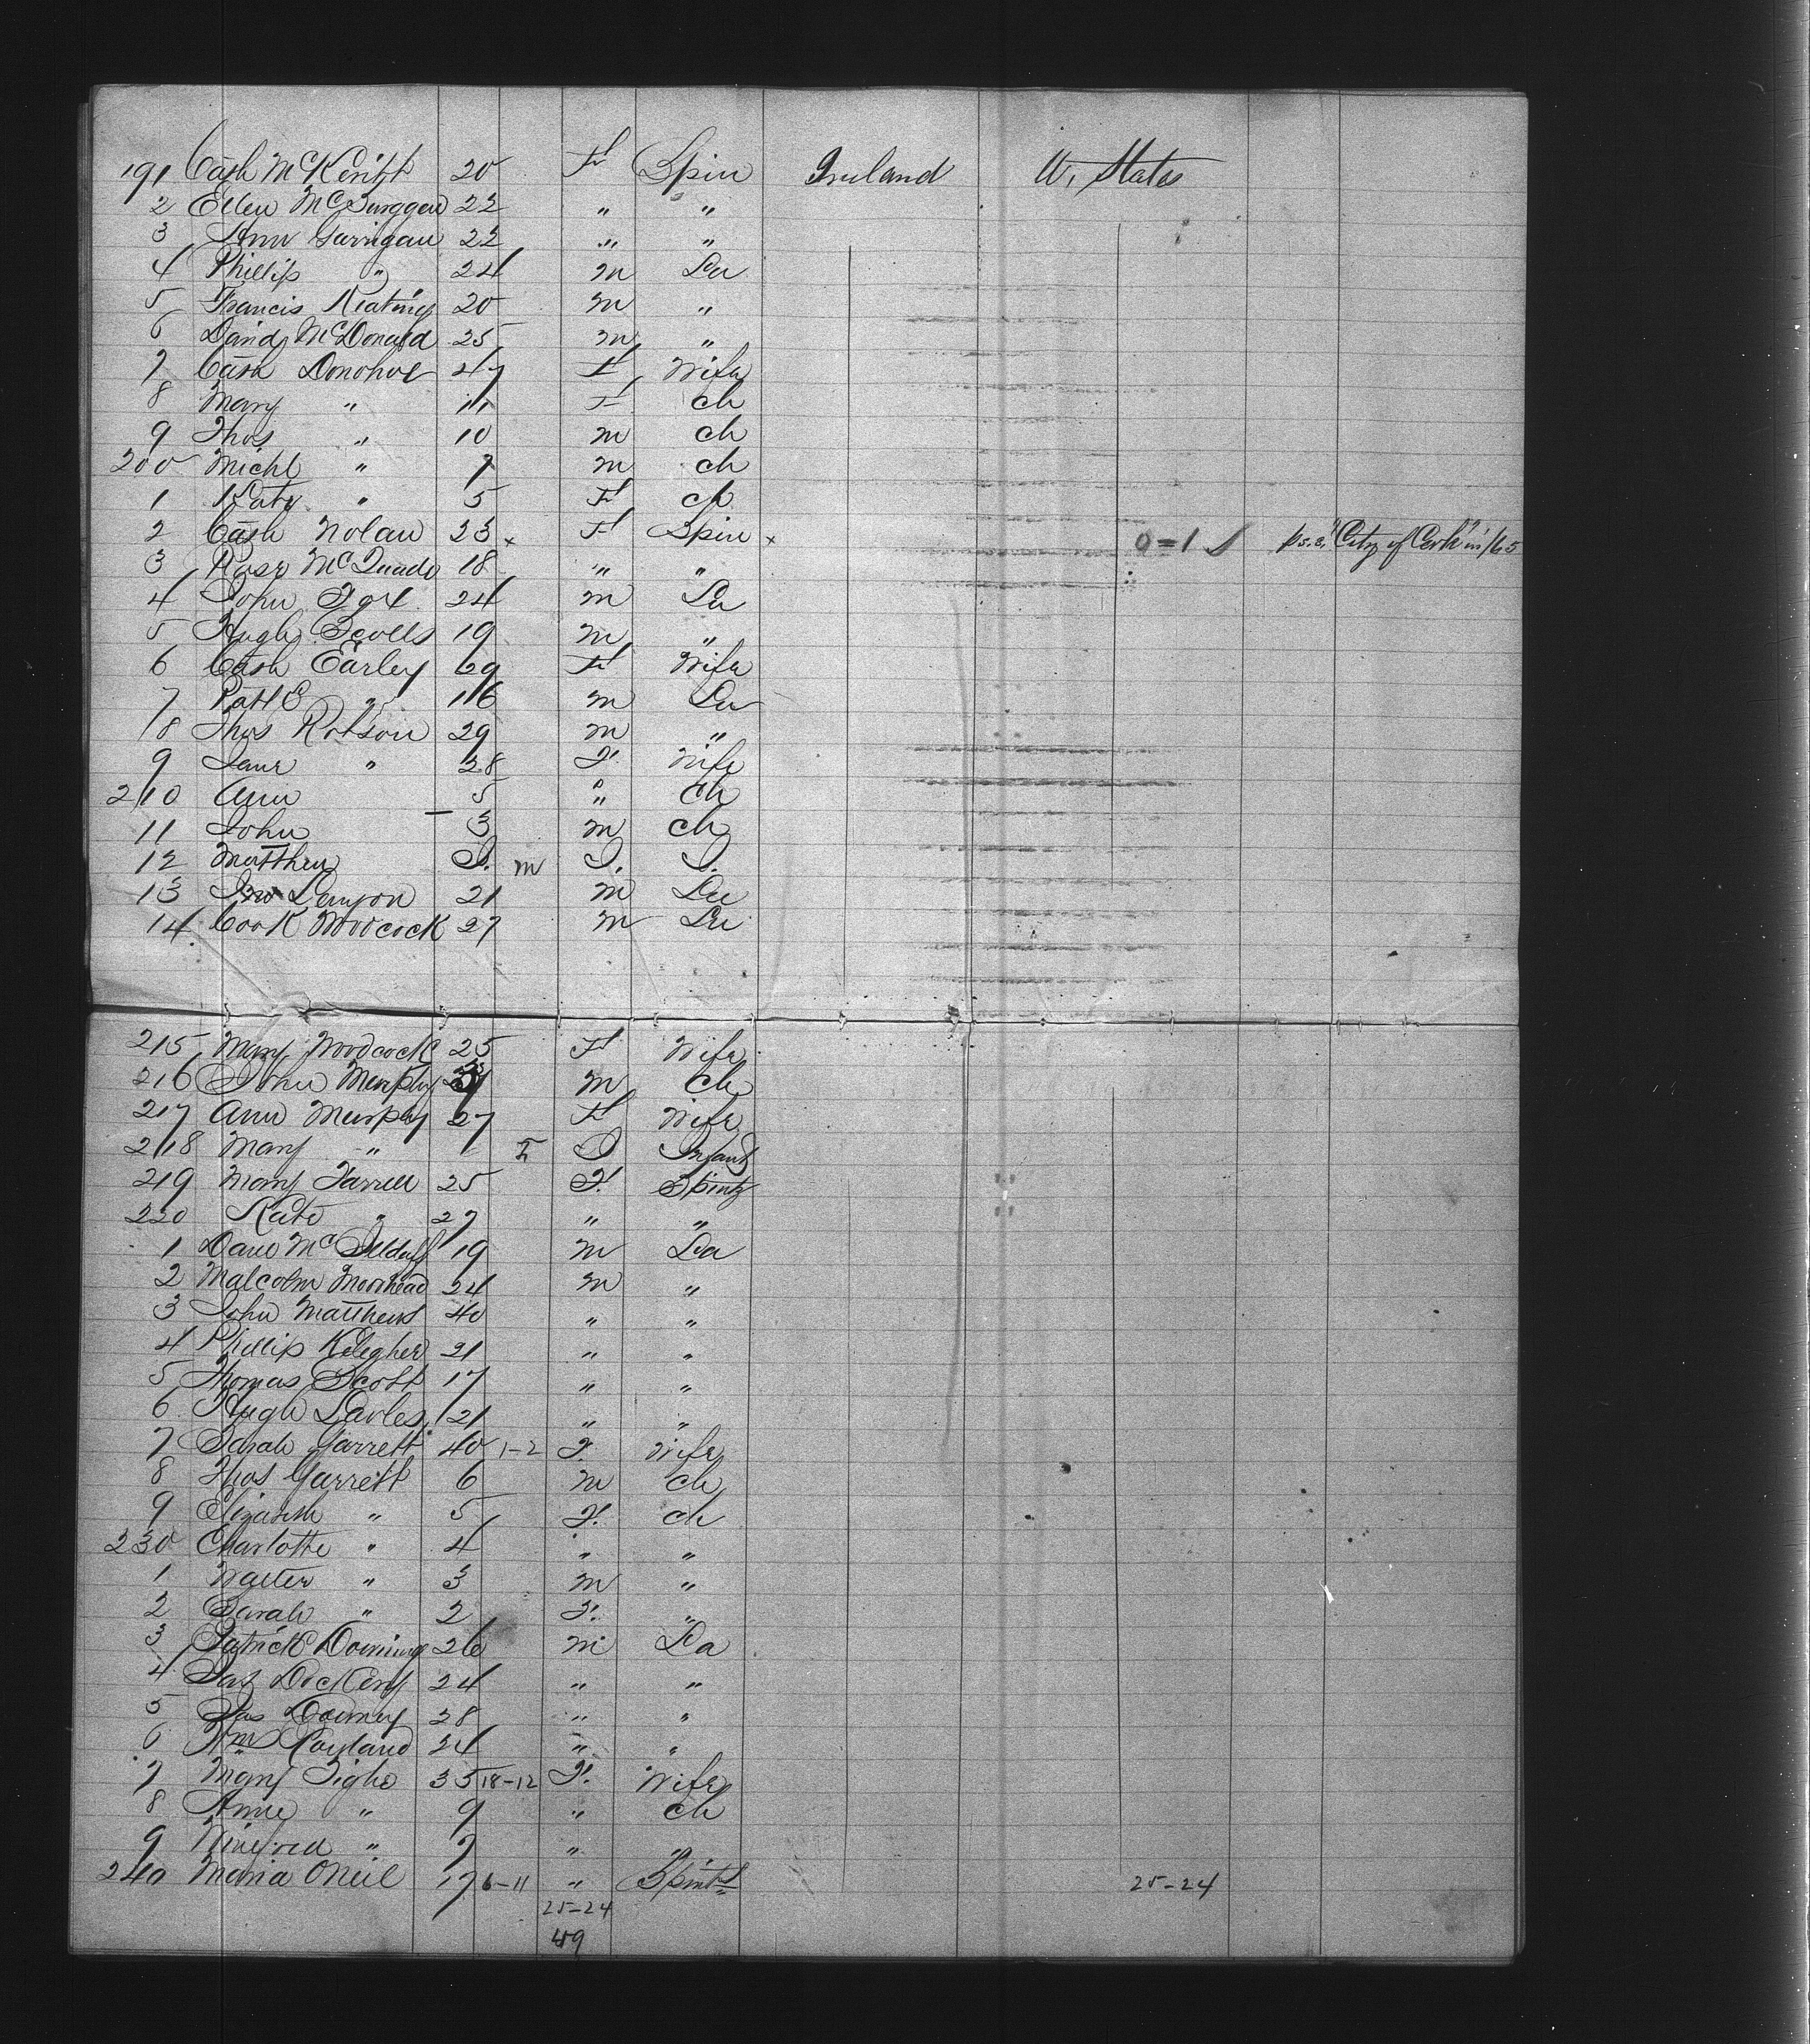 191 Cath McKenift 20 F Spin Ireland U. States
2 Ellen McGurggan 22 " "
3 Ann Garrigan 22 " "
4 Phillip " 24 m La
5 Francis Keating 20 m "
6 David McDonald 25 m "
7 Cath Donohoe 47 F Wife
8 Mary " 11 F ch
9 Thos " 10 m ch
200 Michl " 7 m ch
1 Kate " 5 F ch
2 Cath Nolan 23 x F Spin x 0=1 p.s.s. "City of Cork" in /65
3 Rose McQuade 18 " "
4 John Fox 24 m La
5 Hugh Scolls 19 m "
6 Cath Earley 29 F Wife
7 Patk " 16 m La
8 Thos Robson 29 m "
9 Jane " 28 F. Wife
210 Ann 5 " Ch
11 John 3 m ch
12 Matthew I. m I. I.
13 Jno Lanyon 21 m La
14 Cook Woodcock 27 m La
215 Mary Woodcock 25 F Wife
216 John Murphy m Ch
217 Ann Murphy 27 F Wife
218 Mary " 1 F I Infant
219 Mary Farrell 25 F. Spintr
220 Kate " 27 " "
1 Dan McIlduff 19 m La
2 Malcolm Moorhead 24 m "
3 John Matthews 40 " "
4 Phillip Kelegher 21 " "
5 Thomas Scott 17 " "
6 Hugh Davles 21 " "
7 Sarah Garrett 40 1-2 F. Wife
8 Thos Garrett 6 m ch
9 Elizabeth " 5 F. ch
230 Charlotte " 4 " "
1 Walter " 3 m "
2 Sarah " 2 F. "
3 Patrick Downing 26 m La
4 Jas Dockery 24 " "
5 Jas Downey 28 " "
6 Wm Copland 24 " "
7 Mary Tighe 35 18-12 F. Wife
8 Anne " 9 " ch
9 Winefred " 7 " "
240 Maria ONeil 17 6-11 " Spintr 25-24
25-24
49